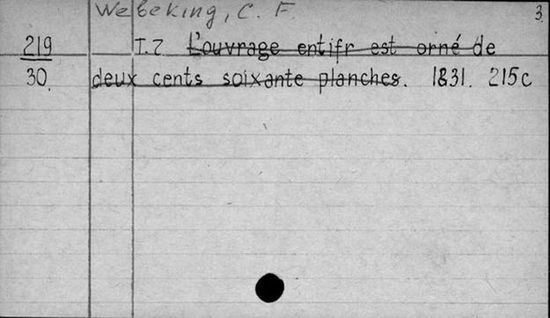 Webeking, C. F 3.
219 T.7 L'ouvrage entifr est orné de
30. deux cents soixante planches. 1831. 215c